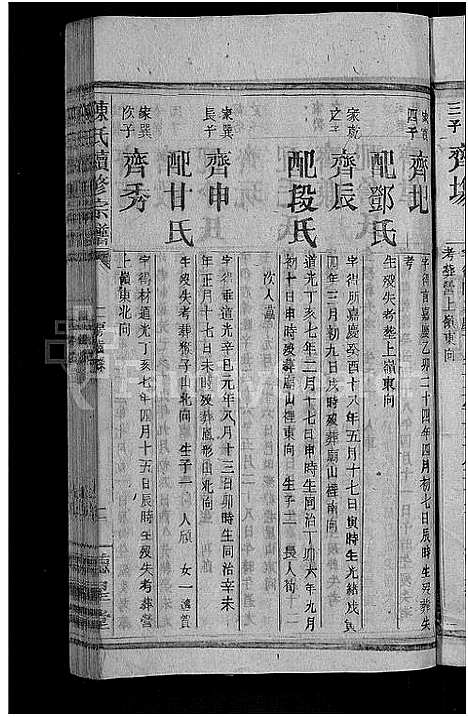 三子 齊
考葬營上嶺東向
四子 齊北
字得 嘉慶乙卯二十四年四月初七日辰時生歿葬失
考
配鄧氏
生歿失考塟上嶺東向
之子 齊辰
字得所嘉慶癸酉十八年五月十七日寅時生光緒戊寅
四年三月初九日戌時歿葬廟山裡南向
配段氏
道光丁亥七年二月十七日申時生同治丁卯六年九月
初十日申時歿葬廟山裡東向 生子二 長人荀
次人
家巽長子 齊申
字得垂道光辛巳元年八月十三日卯時生同治辛未
年正月十七日未時歿葬 形山北向
配甘氏
生歿失考葬猴子山北向 生子一 人頎 女一適賀
家巽次子 齊秀
字得材道光丁亥七年四月十五日辰時生歿失考葬營
上嶺東北向
陳氏續修宗譜
德星堂